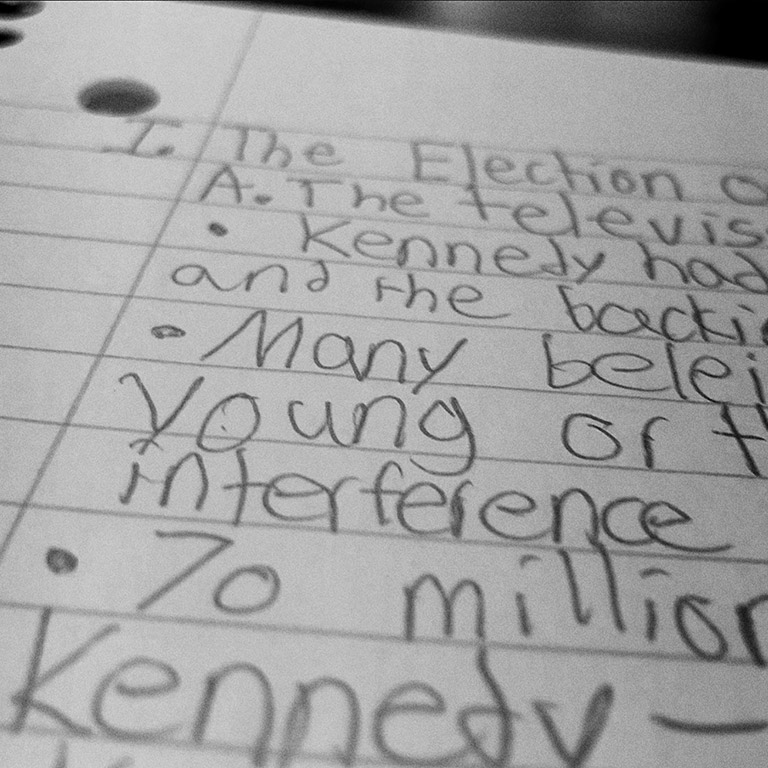 I. The Election
A. The televis
• Kennedy had
and the backi
• Many belei
young or t
interference
• 70 million
Kennedy —